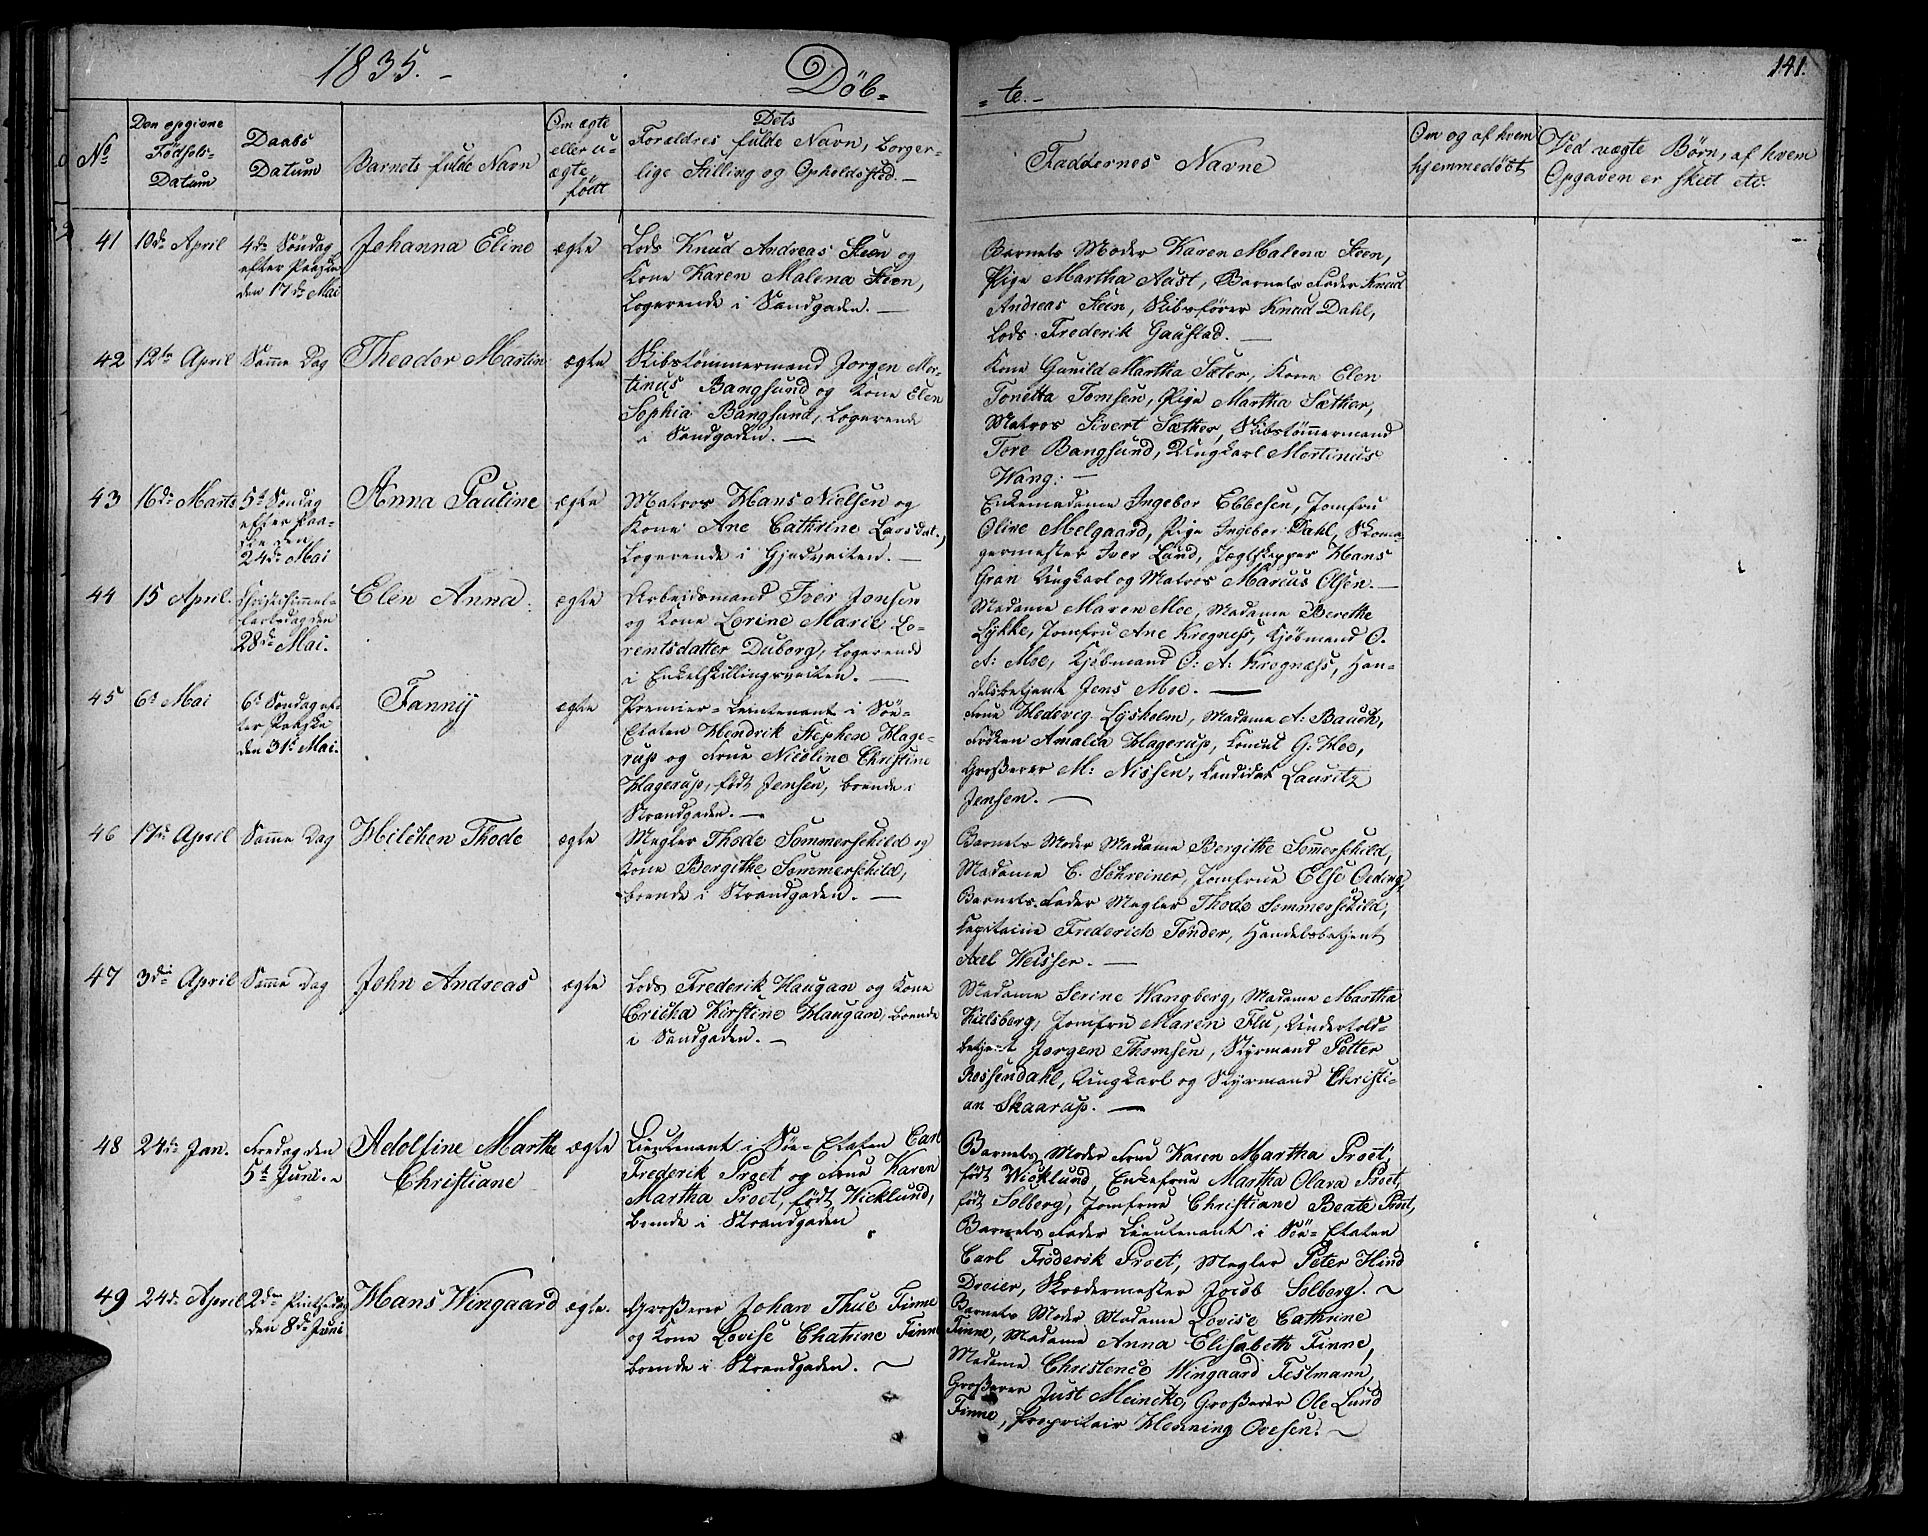 1835.
Døb-
- te.-
141.
No
Den opgivne
Fødsels-
Datum
Daabs
Datum
Barnets fulde Navn
Om ægte
eller u-
ægte
født
Dets
Forældres fulde Navn, borger-
lige Stilling og Opholdssted.
Faddernes Navne
Om og af hvem
hjemmedøbt
Ved uægte Børn, af hvem
Opgaven er skeet etc.
41
10de April
4de Søndag
efter Paaske
den 17de Mai
Johanna Eline
ægte
Lods Knud Andreas Steen og
Kone Karen Malena Steen,
logerende i Sandgaden. —
Barnets Moder Karen Malena Steen,
Pige Martha Aast, Barnets Fader Knud
Andreas Steen, Skibsfører Knud Dahl,
Lods Frederik Gaustad. —
42
12te April
Samme Dag
Theodor Martin
ægte
Skibstømmermand Jørgen Mor-
tinus Bangsund og Kone Elen
Sophia Bangsund, logerende
i Sandgaden. —
Kone Gunild Martha Sæter, Kone Elen
Tonetta Tomsen, Pige Martha Sæther,
Matros Sivert Sæther, Skibstømmermand
Tore Bangsund, Ungkarl Mortinus
Wang. —
43
16de Marts
5te Søndag
efter Paa-
ske den
24de Mai
Anna Pauline
ægte
Matros Hans Nielsen og
Kone Ane Cathrine Larsdat.,
logerende i Gjedveiten. —
Enkemadame Ingebor Ebbesen, Jomfru
Olive Melgaard, Pige Ingebor Dahl, Skoma-
germester Iver Lund, Jægtskipper Hans
Gran Ungkarl og Matros Marcus Olsen. —
44
15 April.
Christihimmel-
fartsdag den
28de Mai.
Elen Anna.
ægte
Arbeidsmand Iver Jonsen
og Kone Lorine Marie Lo-
rentsdatter Duborg, logerende
i Enkelskillingsveiten. —
Madame Maren Moe, Madame Berethe
Lykke, Jomfru Ane Krogness, Kjøbmand O.
A: Moe, Kjøbmand O: A: Krogness, Han-
delsbetjent Jens Moe. —
45
6te Mai
6te Søndag ef-
ter Paaske
den 31te Mai.
Fanny
ægte
Premier-Lieutenant i Søe-
Etaten Hendrik Stephen Hage-
rup og Frue Nicoline Christine
Hagerup, født Jensen, boende i
Strandgaden. —
Frue Hedevig Lysholm, Madame A: Bauck,
Frøken Amalia Hagerup, Consul G: Hoe,
Grosserer M: Nissen, Candidat Lauritz
Jensen. —
46
17de April
Samme Dag
Hilchen Thode
ægte
Megler Thode Sommerschild og
Kone Bergithe Sommerschild,
boende i Strandgaden. —
Barnets Moder Madame Bergithe Sommerschild,
Madame C. Schreiner, Jomfrue Else Oeding,
Barnets Fader Megler Thode Sommerschild,
Capitaine Frederich Tønder, Handelsbetjent
Axel Weisser. —
47
3die April
Samme Dag
John Andreas
ægte
Lods Frederik Haugan og Kone
Ericka Kirstine Haugan, boende
i Sandgaden. —
Madame Serine Wangberg, Madame Martha
Kielsberg, Jomfru Maren Flu, Undertold-
betjent Jørgen Thomsen, Styrmand Petter
Rossendahl, Ungkarl og Styrmand Christi-
an Skaarup. —
48
24de Jan.
Fredag den
5te Juni.
Adolfine Marthe
Christiane
ægte
Lieutenant i Søe-Etaten Carl
Frederik Proet og Frue Karen
Martha Proet, født Wicklund,
boende i Strandgaden
Barnets Moder Frue Karen Martha Proet,
født Wicklund, Enkefrue Martha Olava Proet,
født Solberg, Jomfrue Christiane Beate Proet,
Barnets Fader Lieutenant i Søe-Etaten
Carl Friderik Proet, Megler Peter Hind
Dreier, Skrædermester Jacob Solberg.
49
24de April
2den Pintsedag
den 8de Juni
Hans Wingaard
ægte.
Grosserer Johan Thue Finne
og Kone Lovise Chatrine Finne
boende i Strandgaden.
Barnets Moder Madame Lovise Cathrine
Finne, Madame Anna Elisabeth Finne,
Madame Christence Wingaard Festmann,
Grosserer Just Meincke, Grosserer Ole Lund
Finne, Proprietair Henning Ovesen.